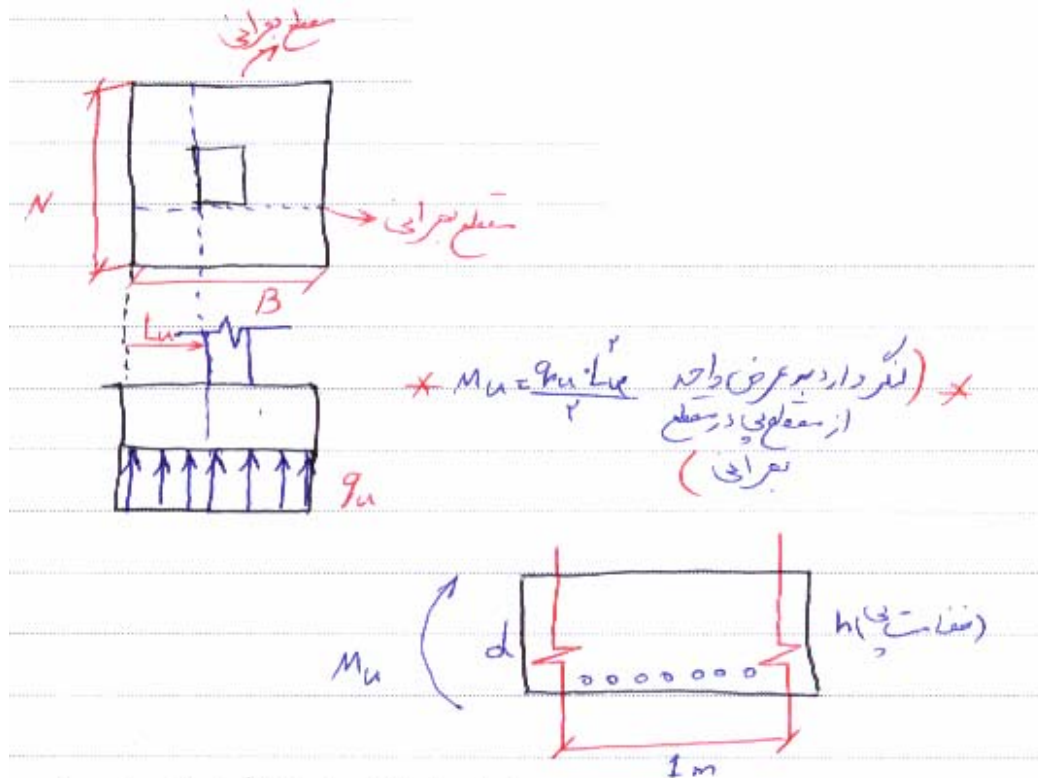 مقطع بحرانی
N
مقطع بحرانی
B
Lu
* Mu = qu · Lu² / ۲ (لنگر وارد بر عرض واحد *
از مقطع پی در مقطع
بحرانی)
qu
Mu
d
h (ضخامت پی)
1 m